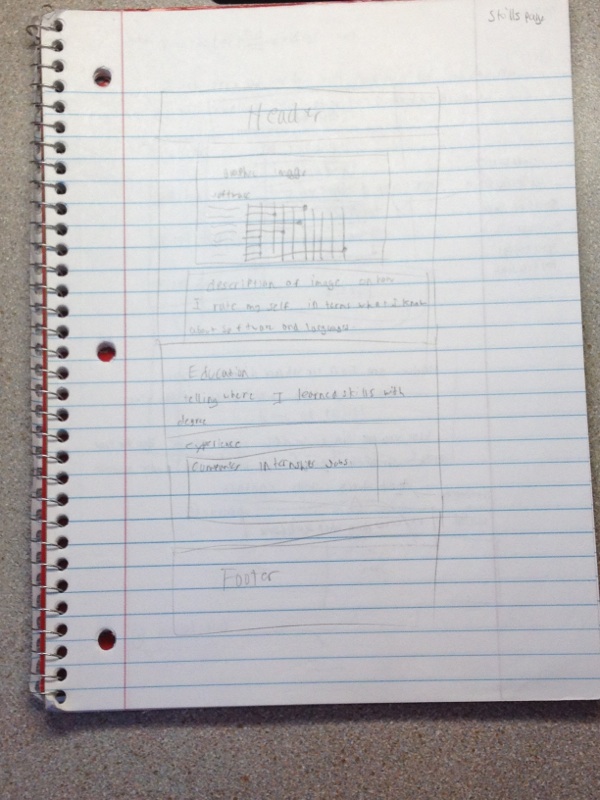 Skills page
Header
graphic image
software
description of image on how
I rate my self in terms what I know
about software and languages
Education
telling where I learned skills with
degree
experience
internships Jobs
Footer